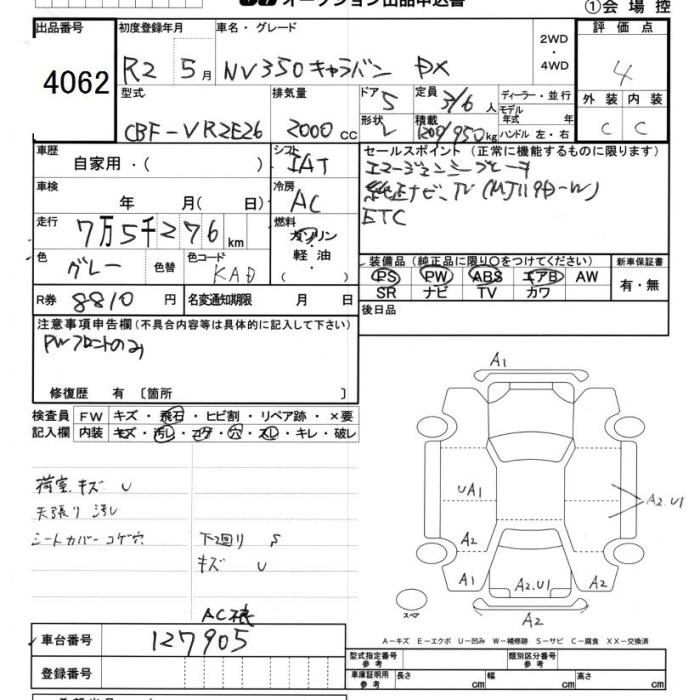 オークション出品申込書
①会場控
出品番号 4062
初度登録年月 R2 5月
車名・グレード NV350キャラバン DX
2WD・4WD
評価点 4
型式 CBF-VR2E26
排気量 2000cc
ドア 5
形状 V
定員 3/6人
積載 1200/950kg
ディーラー・並行
モデル年式 年
ハンドル 左・右
外装 C
内装 C
車歴 自家用・( )
シフト IAT
セールスポイント (正常に機能するものに限ります)
エマージェンシーブレーキ
純正ナビ、TV (MJ119D-W)
ETC
車検 年 月( 日)
冷房 AC
走行 7万5千276km
燃料 ガソリン・軽油・( )
色 グレー
色替
色コード KAD
装備品 (純正品に限り○をつけてください)
PS PW ABS エアB AW
SR ナビ TV カワ
新車保証書 有・無
R券 8810円
名変通知期限 月 日
後日品
注意事項申告欄 (不具合内容等は具体的に記入して下さい)
PWフロントのみ
修復歴 有 〔箇所 〕
検査員記入欄
FW キズ・飛石・ヒビ割・リペア跡・×要
内装 キズ・汚レ・コゲ・穴・スレ・キレ・破レ
荷室キズ U
天張り 汚レ
シートカバー コゲ穴
下回り S
キズ U
A1
UA1
A2.U1
A2
A1
A2.U1
A2
A2
スペア
AC横
車台番号 127905
A-キズ E-エクボ U-凹み W-補修跡 S-サビ C-腐食 XX-交換済
登録番号
型式指定番号 参考
類別区分番号 参考
車庫証明用 参考 長さ cm 幅 cm 高さ cm